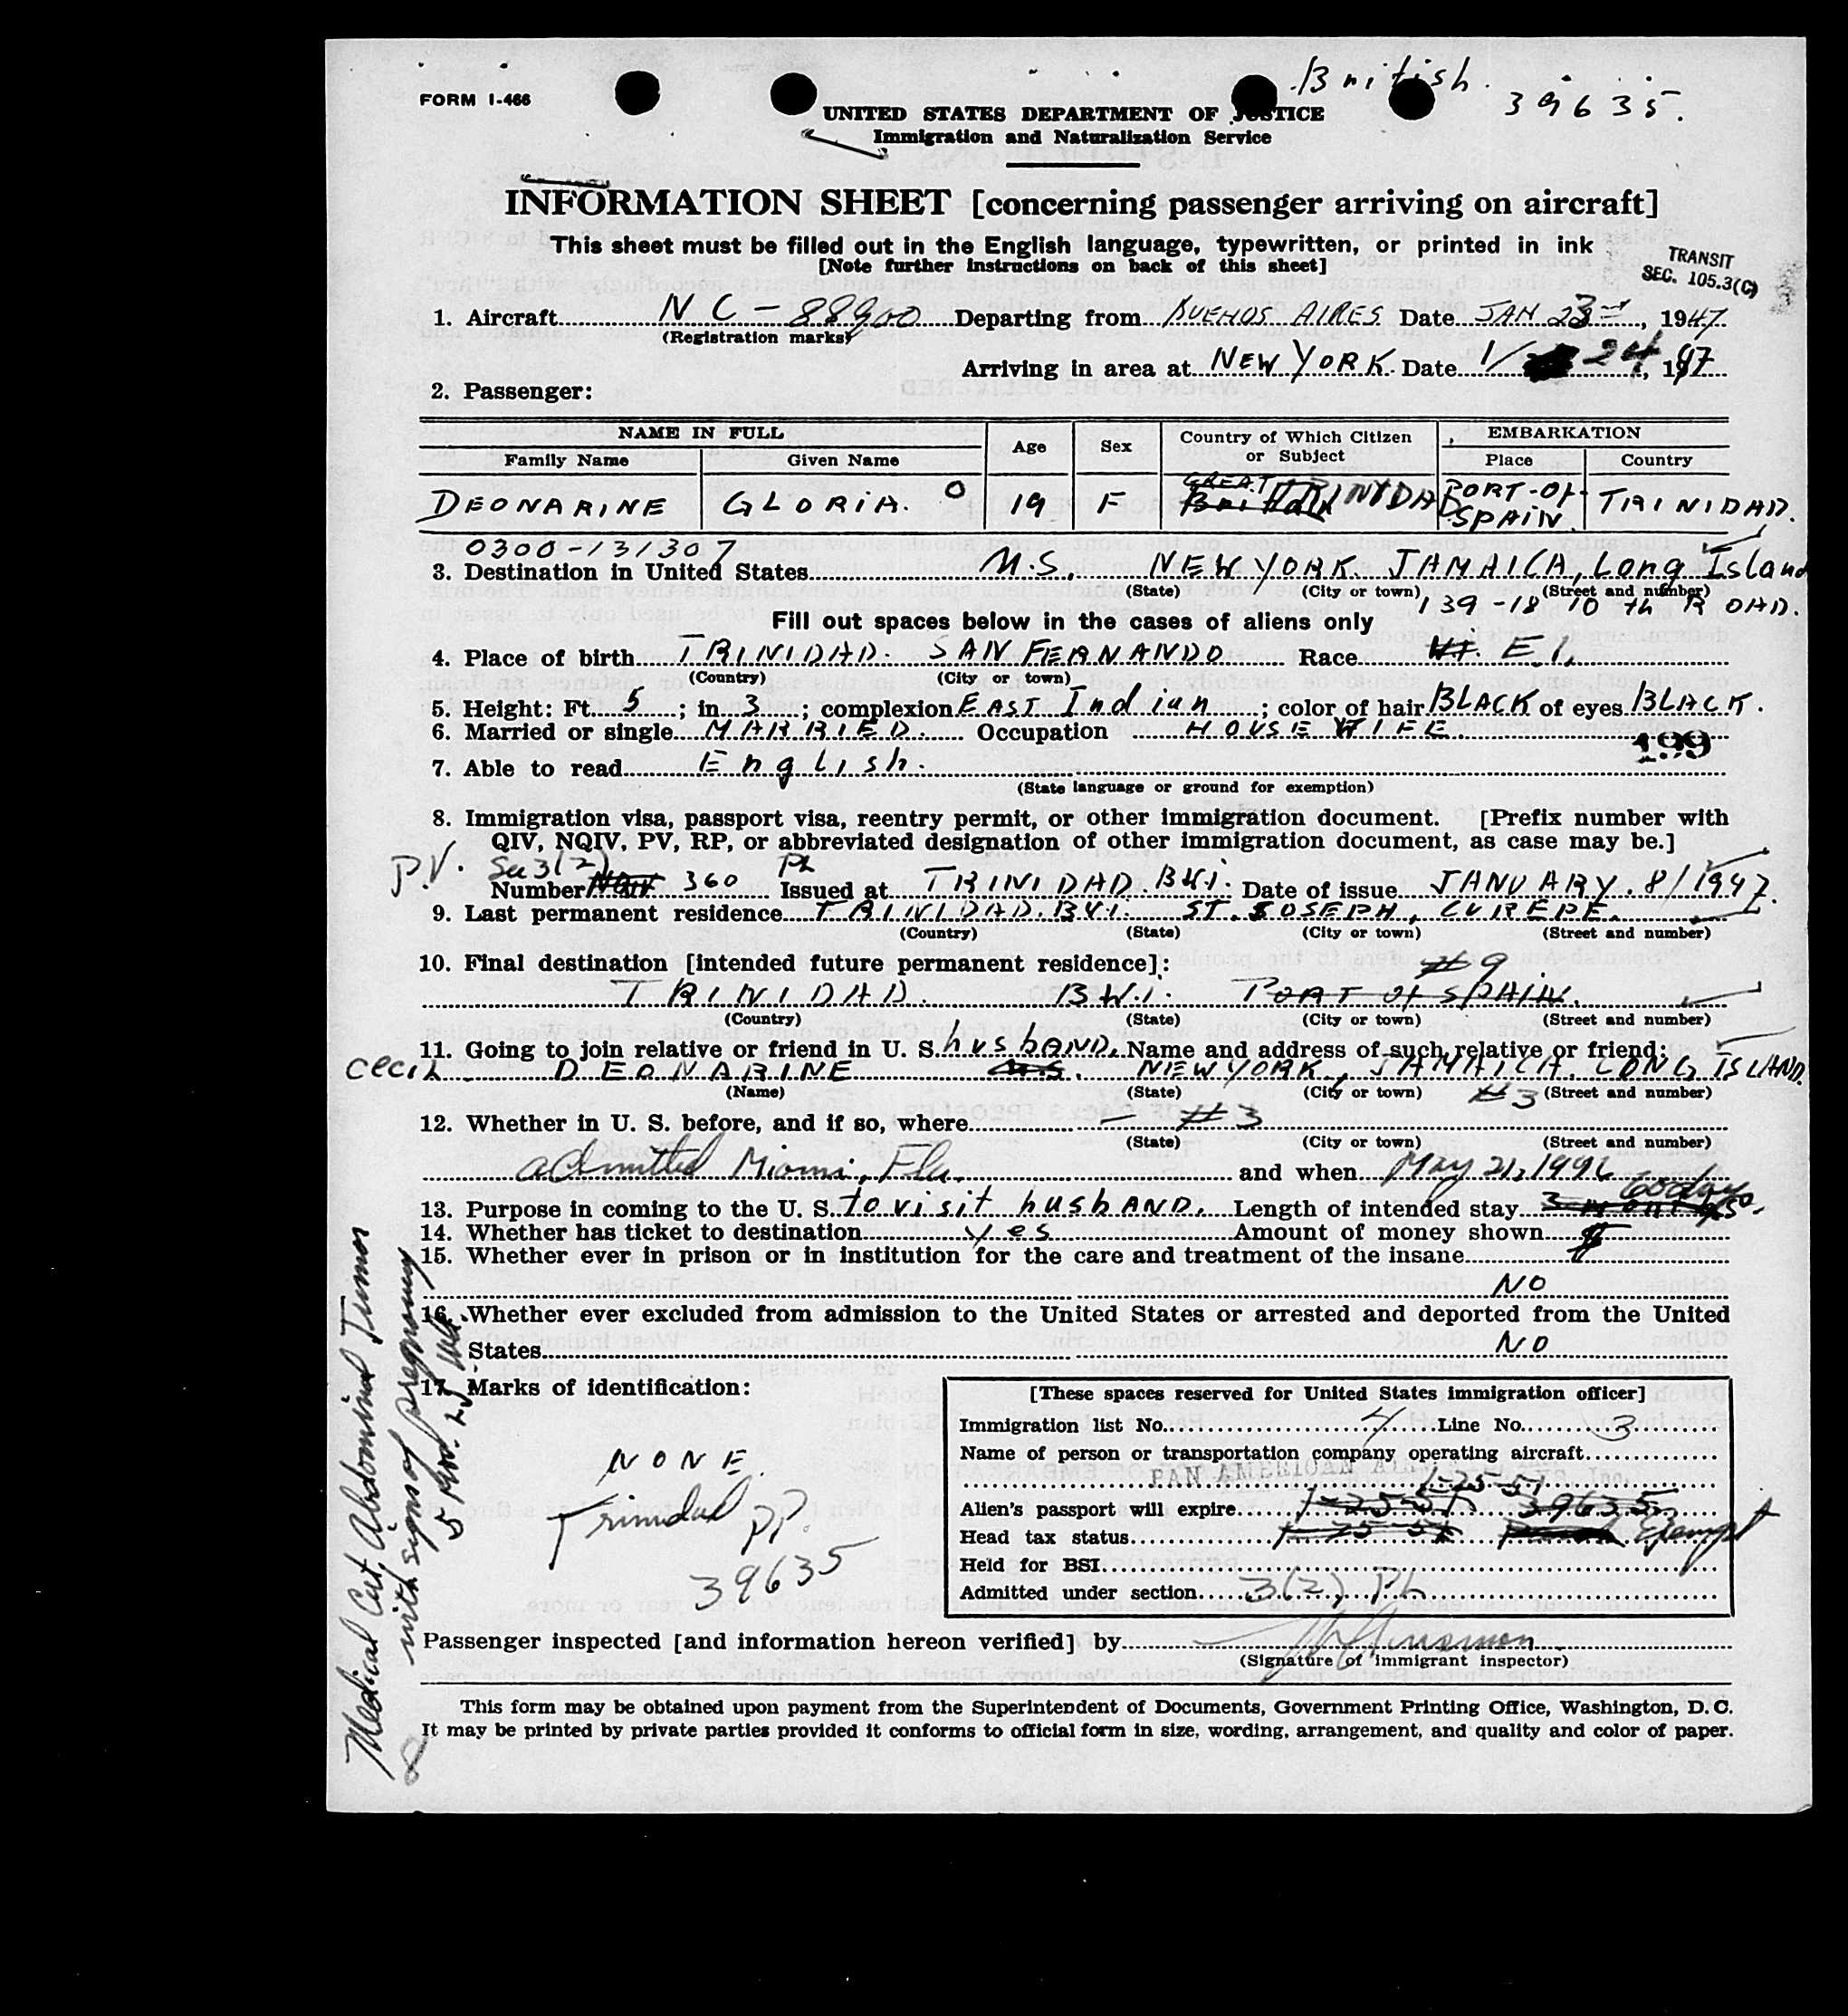 British. 39635.
FORM 1-466
UNITED STATES DEPARTMENT OF JUSTICE
Immigration and Naturalization Service
INFORMATION SHEET [concerning passenger arriving on aircraft]
This sheet must be filled out in the English language, typewritten, or printed in ink
[Note further instructions on back of this sheet]
TRANSIT
SEC. 105.3(C)
1. Aircraft NC-88900 Departing from BUENOS AIRES Date JAN 23rd, 1947
(Registration marks)
Arriving in area at NEW YORK Date 1/ 24, 1947
2. Passenger:
NAME IN FULL Age Sex Country of Which Citizen or Subject EMBARKATION
Family Name Given Name Place Country
DEONARINE GLORIA. O 19 F GREAT Britain TRINIDAD PORT-OF-SPAIN. TRINIDAD.
0300-131307
3. Destination in United States M.S. NEW YORK. JAMAICA, Long Island
(State) (City or town) (Street and number)
139-18 10th ROAD.
Fill out spaces below in the cases of aliens only
4. Place of birth TRINIDAD. SAN FERNANDO Race E.I.
(Country) (City or town)
5. Height: Ft. 5; in. 3; complexion EAST Indian; color of hair BLACK of eyes BLACK.
6. Married or single MARRIED. Occupation HOUSE WIFE.
199
7. Able to read English.
(State language or ground for exemption)
8. Immigration visa, passport visa, reentry permit, or other immigration document. [Prefix number with
QIV, NQIV, PV, RP, or abbreviated designation of other immigration document, as case may be.]
P.V. Sec 3(2) PL
Number 360 Issued at TRINIDAD. B.W.I. Date of issue JANUARY. 8/1947.
9. Last permanent residence TRINIDAD. B.W.I. ST. JOSEPH, CUREPE.
(Country) (State) (City or town) (Street and number)
10. Final destination [intended future permanent residece]:
#9
TRINIDAD. B.W.I. PORT OF SPAIN.
(Country) (State) (City or town) (Street and number)
11. Going to join relative or friend in U. S. husbAND. Name and address of such relative or friend:
CeciL DEONARINE NEW YORK, JAMAICA. LONG ISLAND.
(Name) (State) (City or town) #3 (Street and number)
12. Whether in U. S. before, and if so, where — #3
(State) (City or town) (Street and number)
admitted Miami, Fla. and when May 21, 1946
60 days
13. Purpose in coming to the U. S. to visit husbAND. Length of intended stay 3 months
14. Whether has ticket to destination yes Amount of money shown $
15. Whether ever in prison or in institution for the care and treatment of the insane
NO
16. Whether ever excluded from admission to the United States or arrested and deported from the United
States NO
17. Marks of identification:
NONE.
Trinidad PP.
39635
[These spaces reserved for United States immigration officer]
Immigration list No. 4 Line No. 3
Name of person or transportation company operating aircraft
PAN AMERICAN AIRWAYS, Inc.
1-25-51
Alien's passport will expire 1-25-51 39635
Head tax status 1-25-51 Exempt
Held for BSI
Admitted under section 3(2), PL
Passenger inspected [and information hereon verified] by
(Signature of immigrant inspector)
This form may be obtained upon payment from the Superintendent of Documents, Government Printing Office, Washington, D. C.
It may be printed by private parties provided it conforms to official form in size, wording, arrangement, and quality and color of paper.
Medical Cert. Abdominal Tumor
with signs of pregnancy
5 Mo.